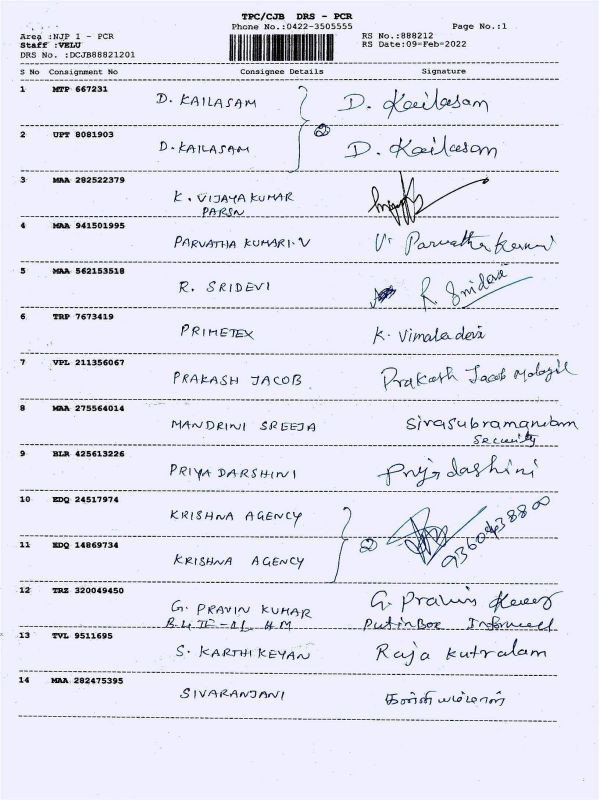 TPC/CJB DRS - PCR
Phone No.:0422-3505555 Page No.:1
Area :NJP 1 - PCR RS No.:888212
Staff :VELU RS Date:09-Feb-2022
DRS No. :DCJB88821201
S No Consignment No Consignee Details Signature
1 MTP 667231 D. KAILASAM D. Kailasam
2 UPT 8081903 D. KAILASAM D. Kailasam
3 MAA 282522379 K. VIJAYA KUMAR
PARSN
4 MAA 941501995 PARVATHA KUMARI. V V. Parvatha Kumari
5 MAA 562153518 R. SRIDEVI R. Sridevi
6 TRP 7673419 PRIMETEX K. Vimaladevi
7 VPL 211356067 PRAKASH JACOB Prakash Jacob
8 MAA 275564014 MANDRINI SREEJA Sivasubramaniam
Security
9 BLR 425613226 PRIYA DARSHINI Priyadashini
10 EDQ 24517974 KRISHNA AGENCY
11 EDQ 14869734 KRISHNA AGENCY
12 TRZ 320049450 G. PRAVIN KUMAR G. Pravin
Put in Box Informed
13 TVL 9511695 S. KARTHIKEYAN Raja Kutralam
14 MAA 282475395 SIVARANJANI